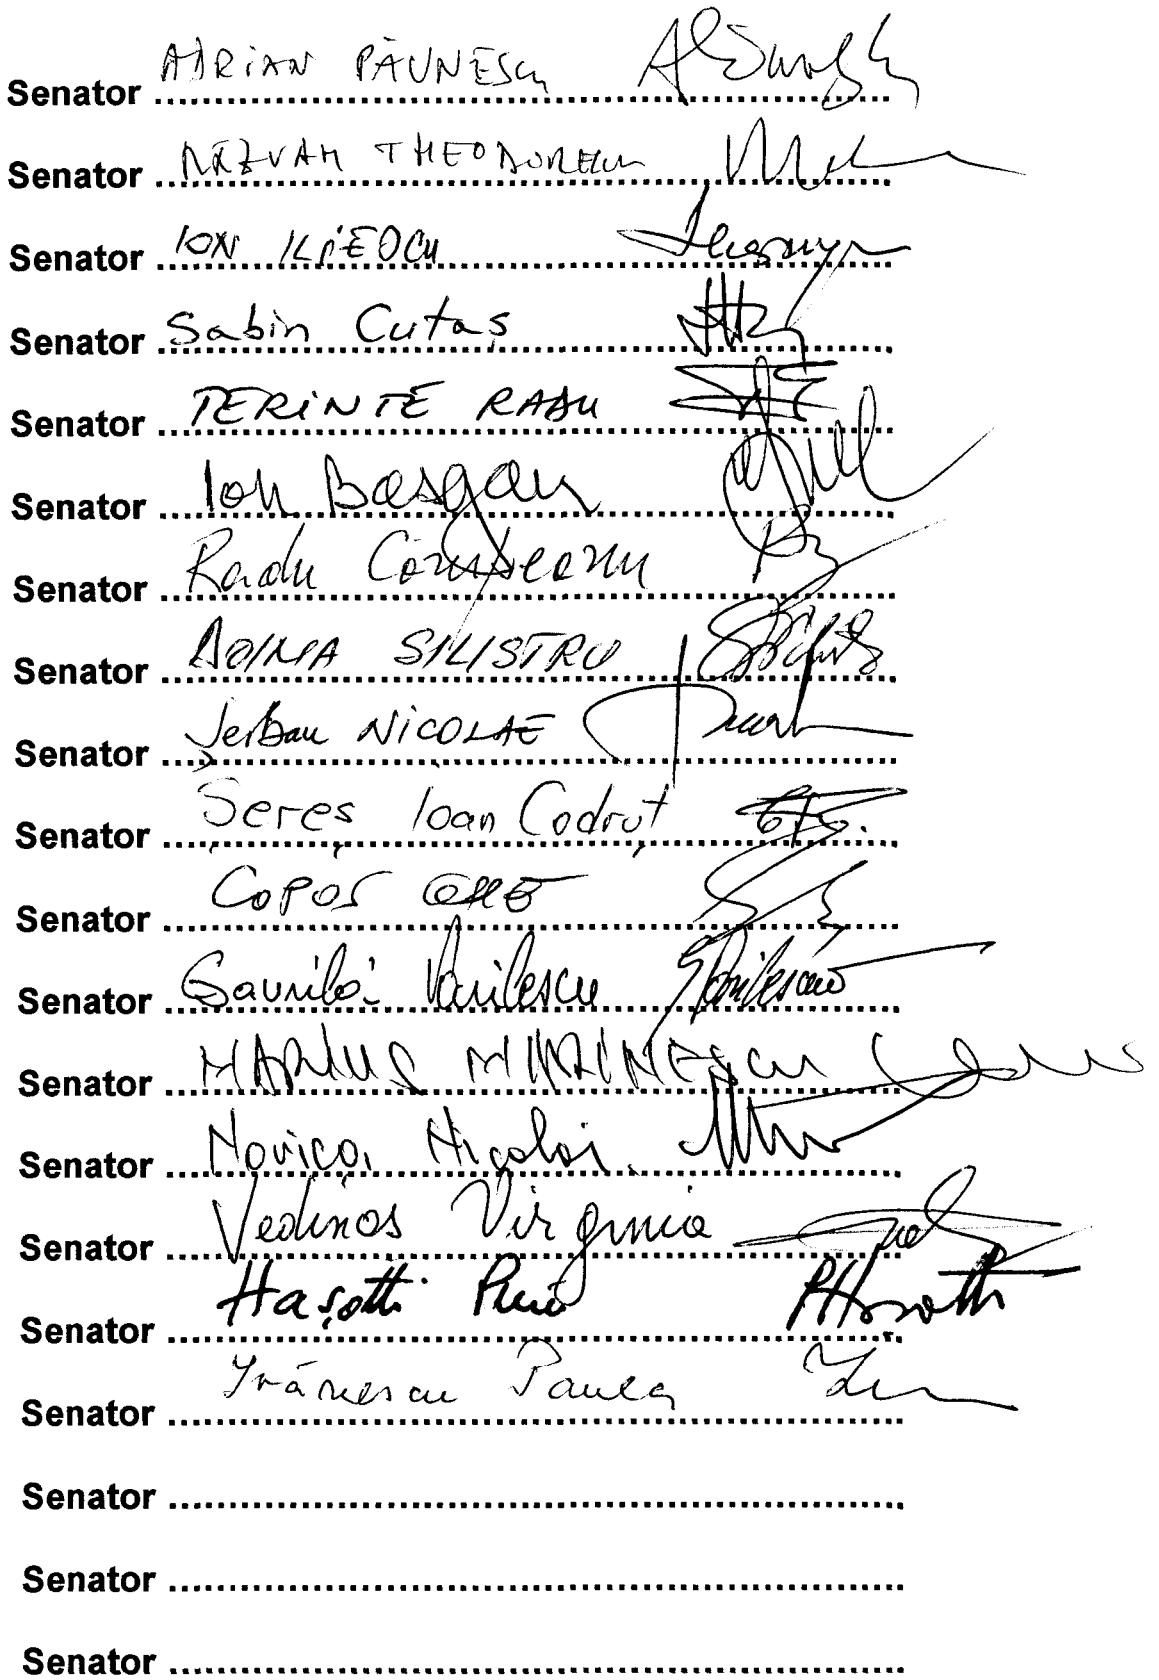 Senator ADRIAN PĂUNESCU
Senator RĂZVAN THEODORESCU
Senator ION ILIESCU
Senator Sabin Cutaș
Senator TERINTE RADU
Senator Ion Basgan
Senator Radu Câmpeanu
Senator DOINA SILISTRU
Senator Șerban NICOLAE
Senator Șereș Ioan Codruț
Senator COPOS GHE
Senator Gavrilă Vasilescu
Senator MARIUS MARINESCU
Senator Novica Nicolai
Senator Vedinaș Virginia
Senator Hașotti Puiu
Senator Ivănescu Paula
Senator
Senator
Senator